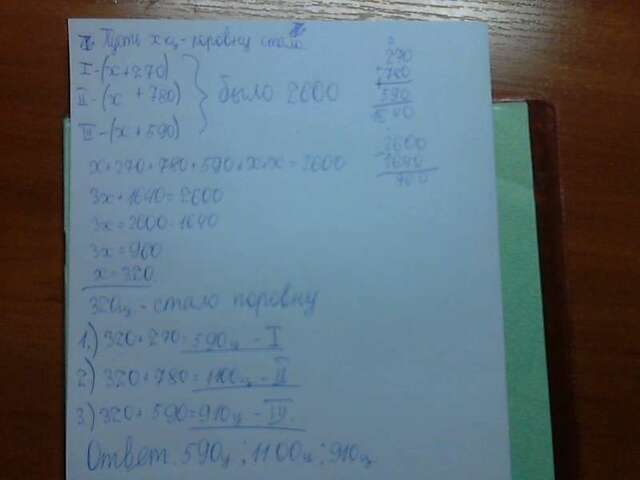 Пусть x ц - поровну стало
I - (x + 270)
II - (x + 780)
III - (x + 590)
было 2600
x + 270 + 780 + 590 + x + x = 2600
3x + 1640 = 2600
3x = 2600 - 1640
3x = 960
x = 320
320ц - стало поровну
1.) 320 + 270 = 590ц - I
2) 320 + 780 = 1100ц - II
3.) 320 + 590 = 910ц - III
Ответ: 590ц; 1100ц; 910ц
270
+ 780
590
1640
- 2600
1640
960